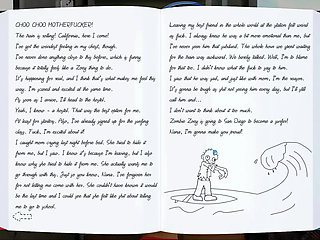 CHOO CHOO MOTHERFUCKER!
The train is rolling! California, here I come!
I've got the weirdest feeling in my chest, though.
I've never done anything close to this before, which is funny
because it totally feels like a Zoey thing to do.
It's happening for real, and I think that's what makes me feel this
way. I'm scared and excited at the same time.
As soon as I arrive, I'll head to the hostel.
Yeah, I know - a hostel. That was the best option for me.
At least for starters. Also, I've already signed up for the surfing
class. Fuck, I'm excited about it.
I caught mom crying last night before bed. She tried to hide it
from me, but I saw. I know it's because I'm leaving, but I also
know why she tried to hide it from me. She actually wants me to
go through with this. Just so you know, Nana, I've forgiven her
for not letting me come with her. She couldn't have known it would
be the last time and I could see that she felt like shit about telling
me to go to school.
Leaving my best friend in the whole world at the station felt weird
as fuck. I always knew he was a bit more emotional than me, but
I've never seen him that subdued. The whole time we spent waiting
for the train was awkward. We barely talked. Well, I'm to blame
for that too. I didn't know what the fuck to say to him.
I saw that he was sad, and just like with mom, I'm the reason.
It's gonna be tough as shit not seeing him every day, but I'll still
call him and...
I don't want to think about it too much.
Zombie Zoey is going to San Diego to become a surfer!
Nana, I'm gonna make you proud!